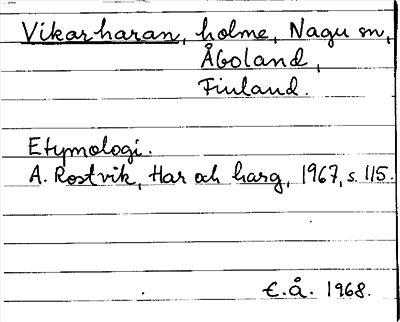 Vikarharan, holme, Nagu sn,
Åboland,
Finland.
Etymologi.
A. Rostvik, Har och harg, 1967, s. 115.
€.Å. 1968.